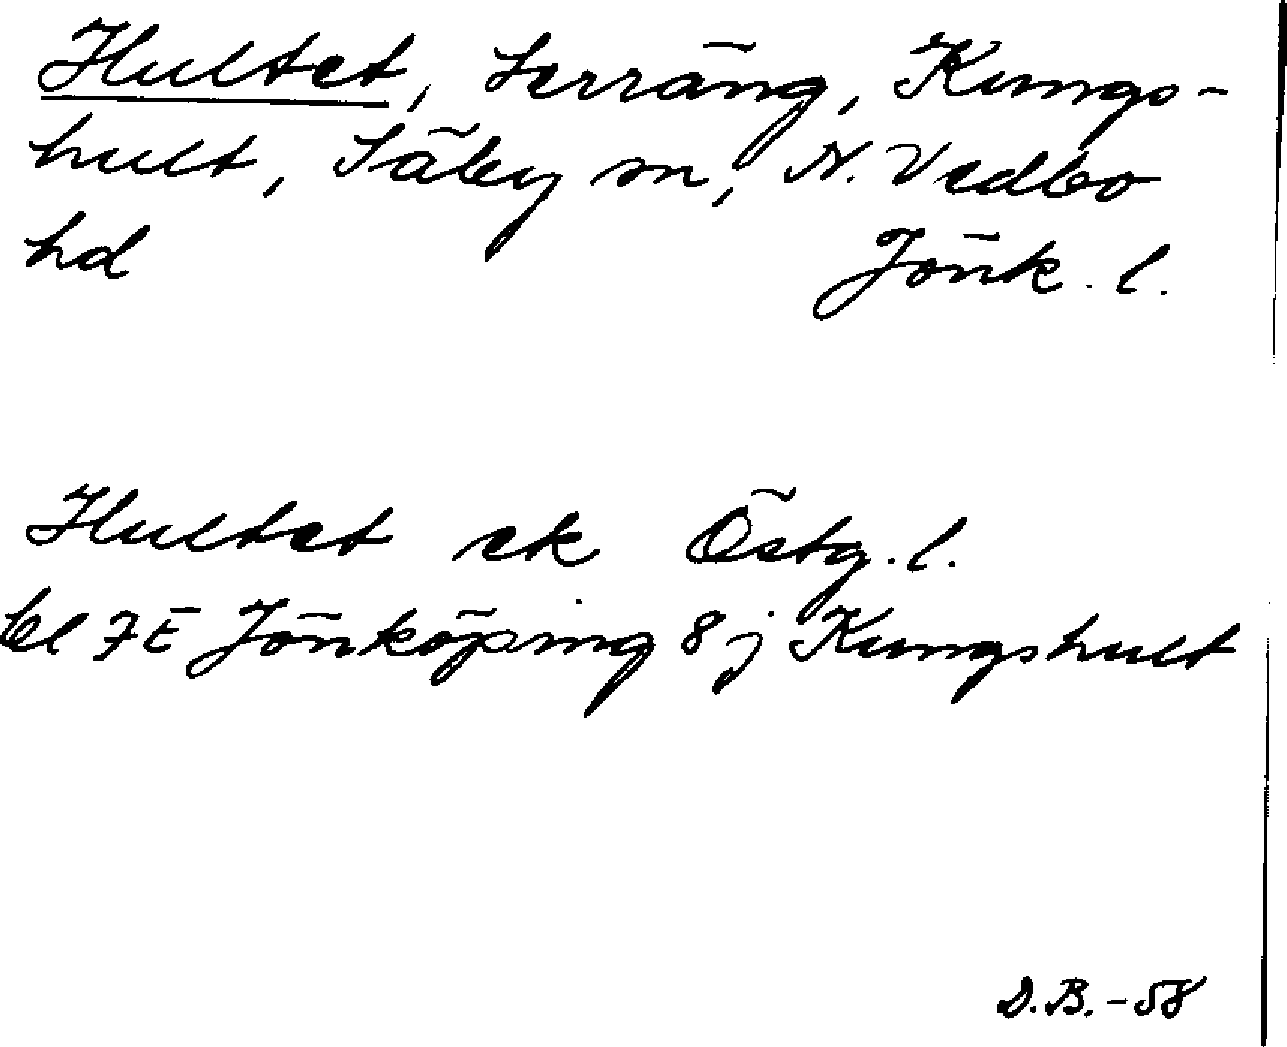 Hultet, Terräng, Kungs-
hult, Säby sn, N. Vedbo
hd Jönk. l.
Hultet ek Östg. l.
bl 7E Jönköping 8 j Kungshult
D.B. - 58